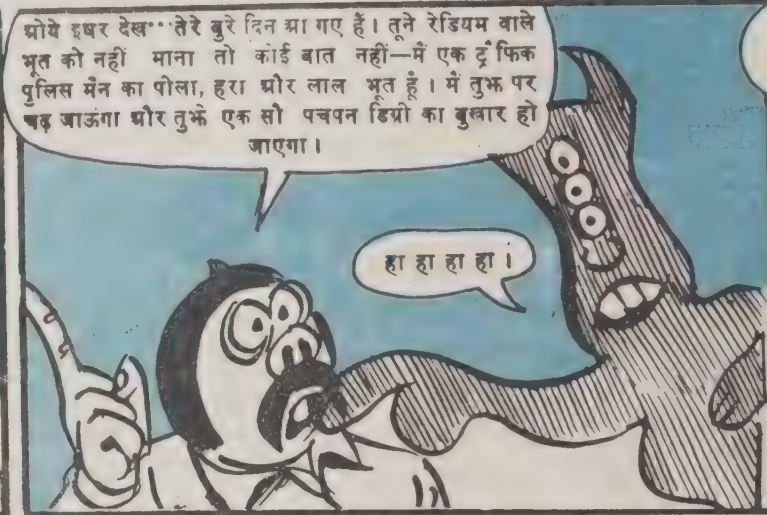 ओये इधर देख···तेरे बुरे दिन आ गए हैं। तूने रेडियम वाले
भूत को नहीं माना तो कोई बात नहीं—मैं एक ट्रैफिक
पुलिस मैन का पीला, हरा और लाल भूत हूँ। मैं तुझ पर
चढ़ जाऊंगा और तुझे एक सौ पचपन डिग्री का बुखार हो
जाएगा।
हा हा हा हा।